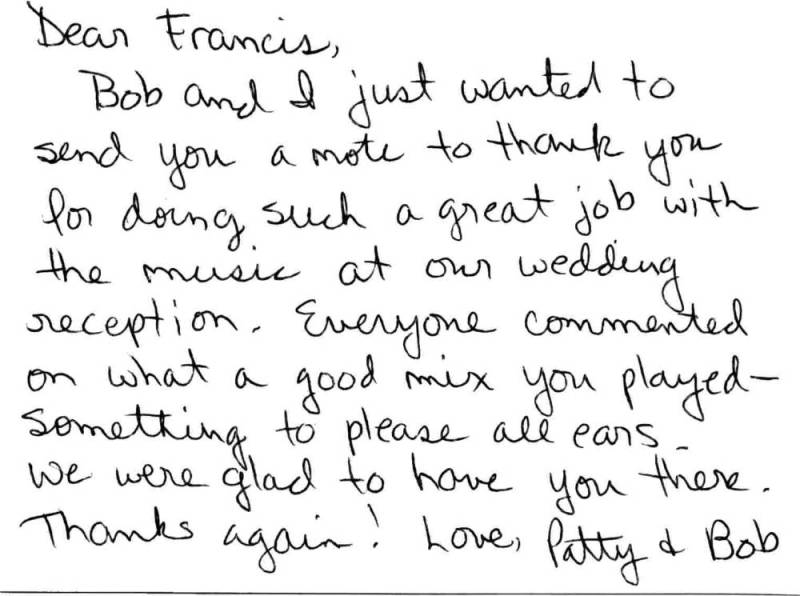 Dear Francis,
Bob and I just wanted to
send you a note to thank you
for doing such a great job with
the music at our wedding
reception. Everyone commented
on what a good mix you played—
something to please all ears.
We were glad to have you there.
Thanks again! Love, Patty & Bob